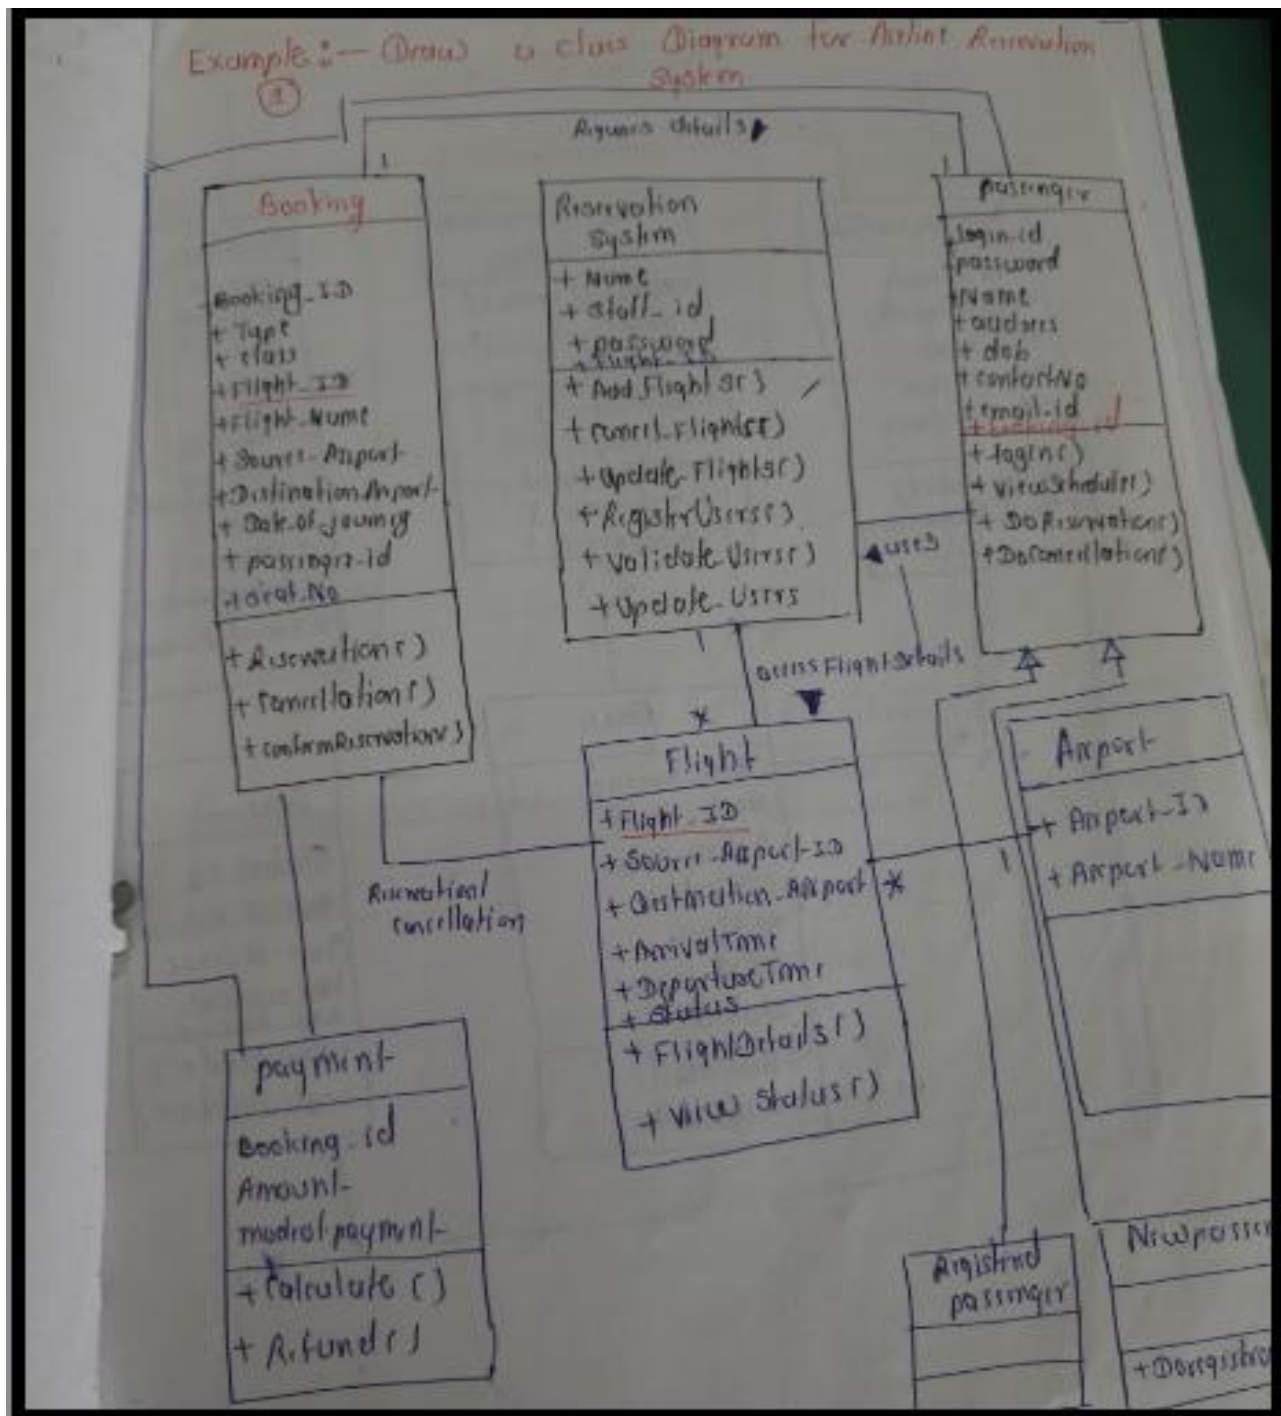 Example :- Draw a class Diagram for Airline Reservation
System
1
Requires details
1
1
Booking
Booking_ID
+ Type
+ class
+ Flight_ID
+ Flight_Name
+ Source_Airport
+ Distination_Airport
+ Date_of_journey
+ passinger_id
+ Seat_No
+ Reservation()
+ Cancellation()
+ confirmReservation()
Reservation
System
+ Name
+ Staff_id
+ password
+ Flight_ID
+ Add_Flights()
+ Cancel_Flights()
+ Update_Flights()
+ RegisterUsers()
+ Validate_Users()
+ Update_Users
passinger
login_id
password
+ Name
+ address
+ dob
+ contactNo
+ email_id
+ login()
+ viewSchedule()
+ DoReservation()
+ DoCancellation()
uses
1
access FlightDetails
*
Flight
+ Flight_ID
+ Source_Airport_ID
+ Destination_Airport
*
+ ArrivalTime
+ DepartureTime
+ Status
+ FlightDetails()
+ View Status()
1
Airport
+ Airport_ID
+ Airport_Name
Reservation/
cancellation
payment
Booking_id
Amount
modeofpayment
+ Calculate ()
+ Refund()
Registered
passenger
Newpassen
+ Doregistra